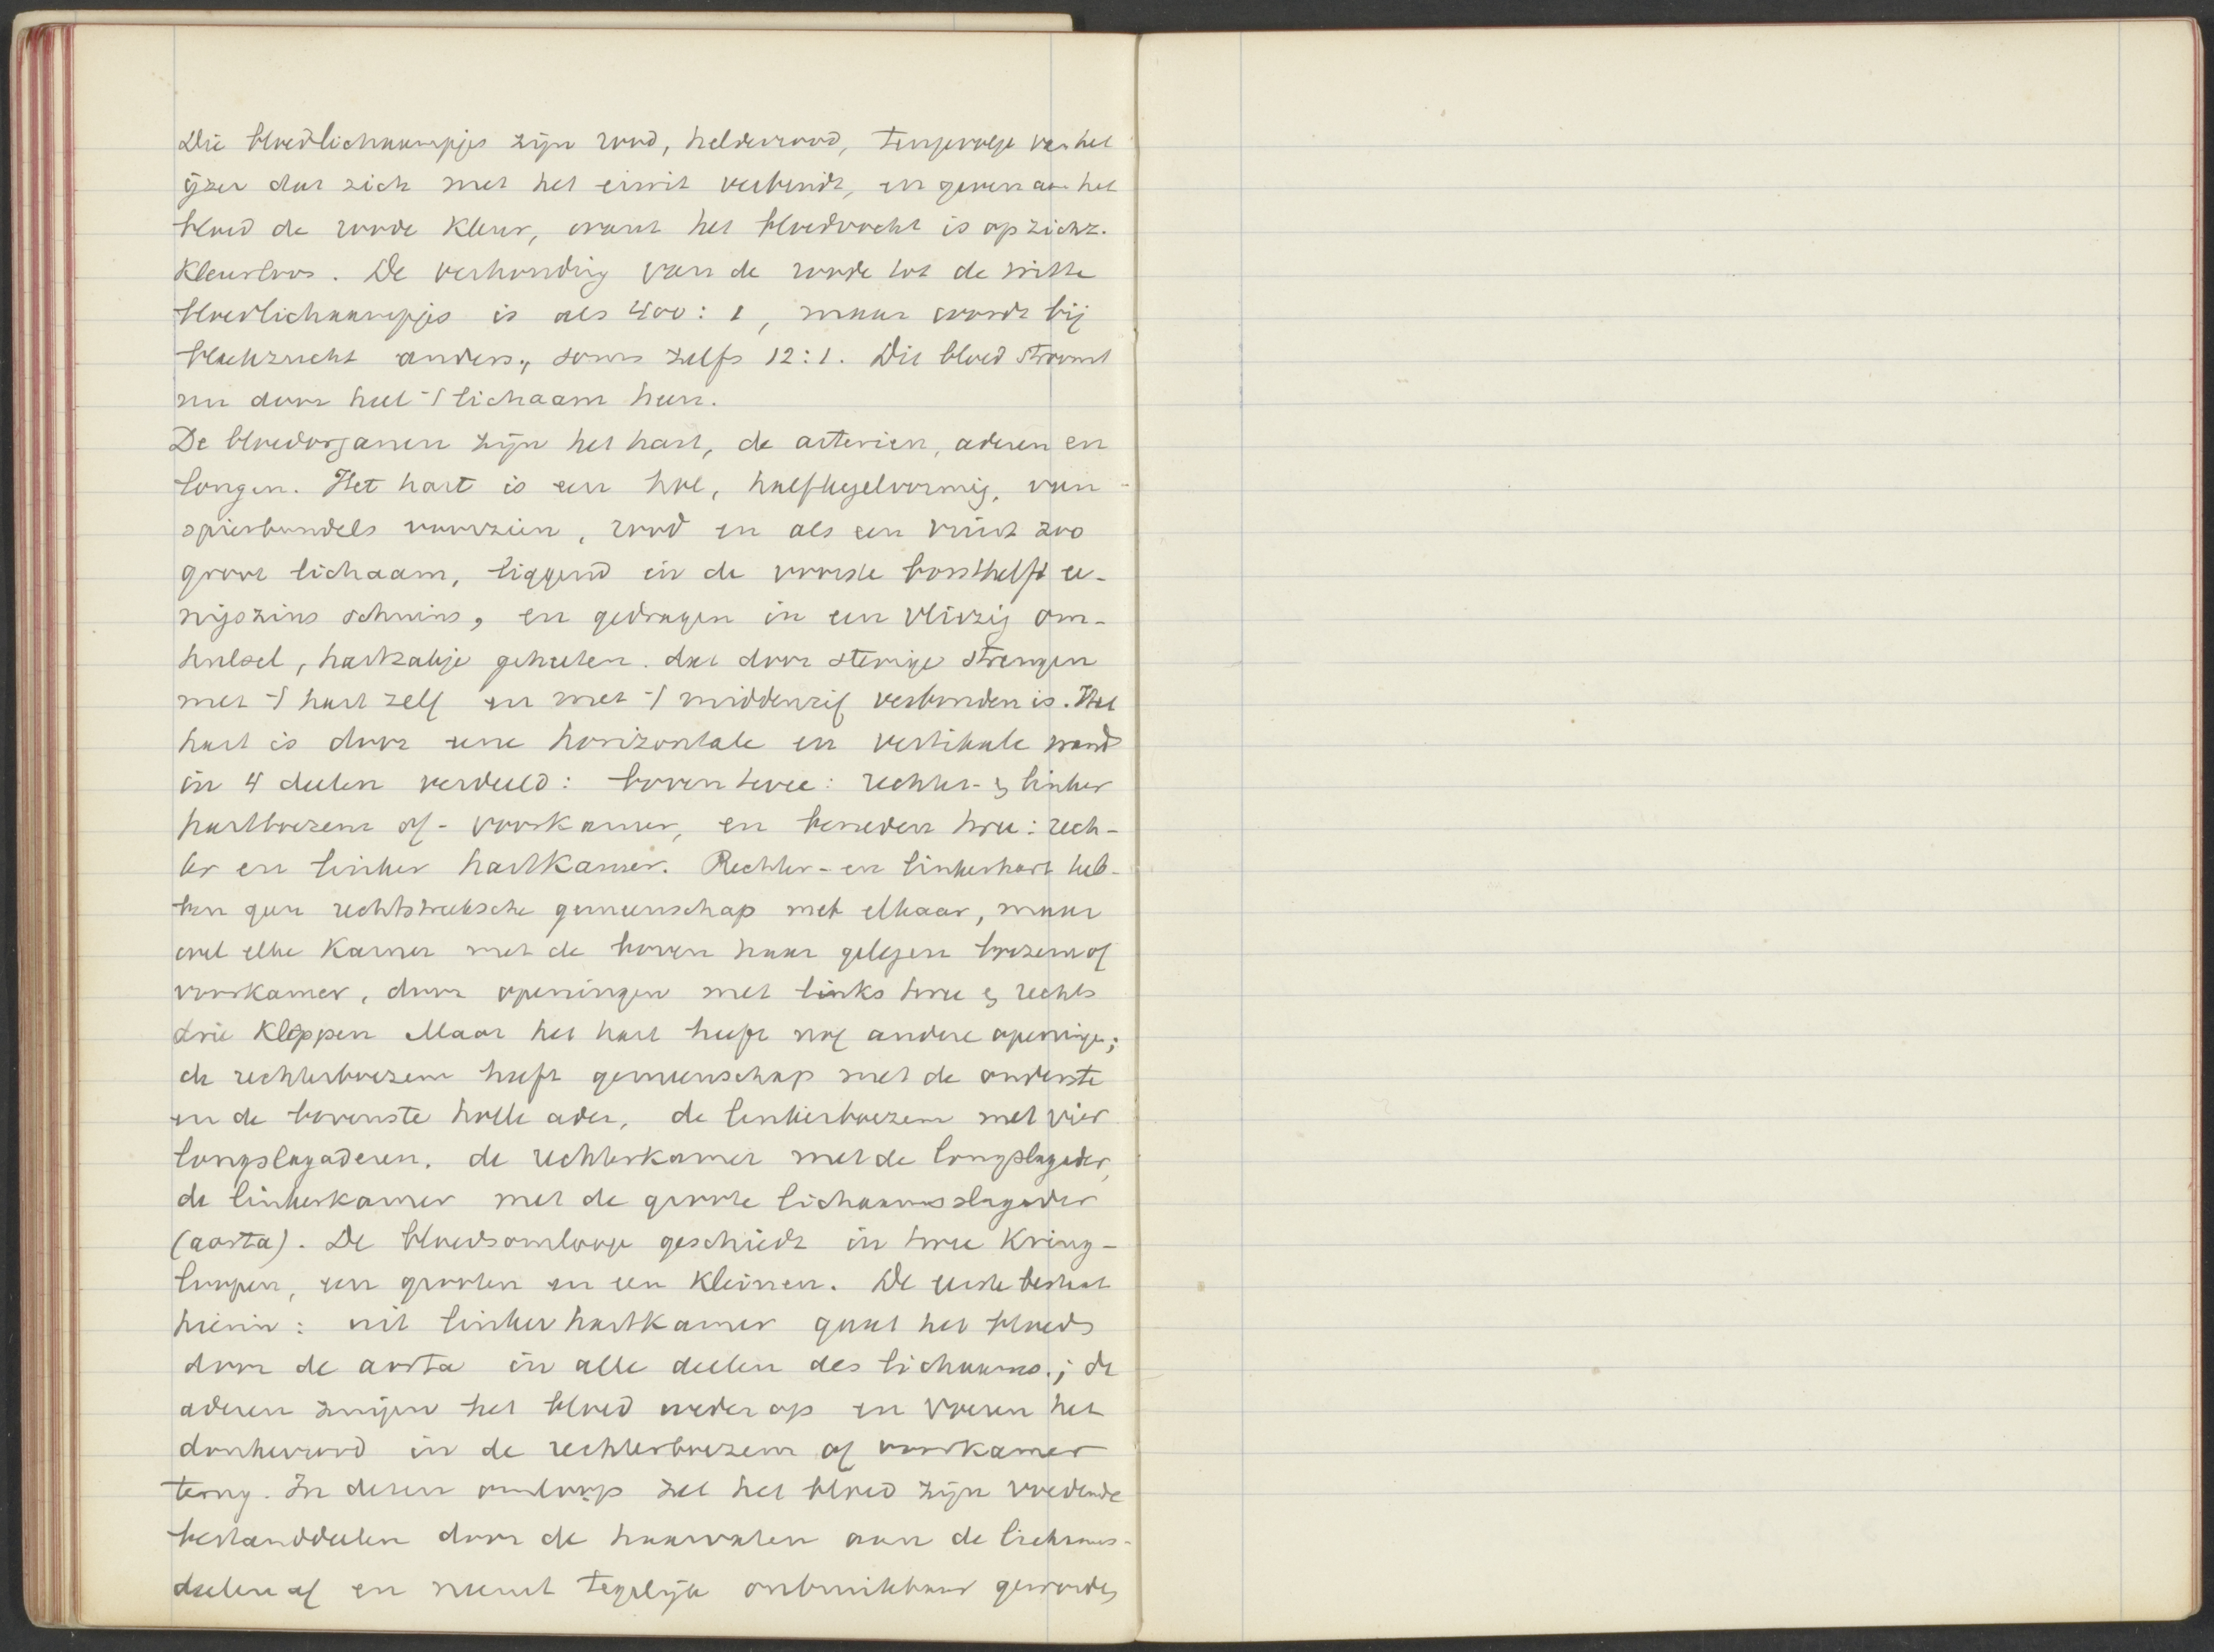 Die bloedlichaampjes zijn rood, helderrood, tengevolge van het
ijzer dat zich met het eiwit verbindt, en geven aan het
bloed de roode kleur, want het bloedvocht is op zichz.
kleurloos. De verhouding van de roode tot de witte
bloedlichaampjes is als 400: 1, maar wordt bij
bleekzucht anders, soms zelfs 12:1. Dit bloed stroomt
nu door heel 't lichaam heen.
De bloedorganen zijn het hart, de arterien, aderen en
longen. Het hart is een hol, halfkegelvormig, van
spierbundels voorzien, rood en als een vuist zoo
groot lichaam, liggend in de voorste borsthelft ee-
nigszins schuins, en gedragen in een vliezig om-
hulsel, hartzakje geheeten. dat door stevige strengen
met 't hart zelf en met 't middenrif verbonden is. Het
hart is door eene horizontale en vertikale wand
in 4 deelen verdeeld: boven twee: rechter- & linker
hartboezem of - voorkamer, en beneden twee: rech-
ter en linker hartkamer. Rechter- en linkerhart heb-
ben geen rechtstreeksche gemeenschap met elkaar, maar
wel elke kamer met de boven haar gelegen boezem of
voorkamer, door openingen met links twee & rechts
drie kleppen Maar het hart heeft nog andere openingen;
de rechterboezem heeft gemeenschap met de onderste
en de bovenste holle ader, de linkerboezem met vier
longslagaderen, de rechterkamer met de longslagader,
de linkerkamer met de groote lichaamsslagader
(aorta). De bloedsomloop geschiedt in twee kring-
loopen, een grooten en een kleinen. De eerste bestaat
hierin: uit linker hartkamer gaat het bloed
door de aorta in alle deelen des lichaams.; de
aderen zuigen het bloed weder op en voeren het
donkerrood in de rechterboezem of voorkamer
terug. In dezen omloop zet het bloed zijn voedende
bestanddeelen door de haarvaten aan de lichaams-
deelen af en neemt tegelijk onbruikbaar geworden